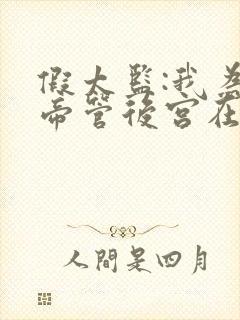 假太監:我為
帝管後宮在
人間是四月